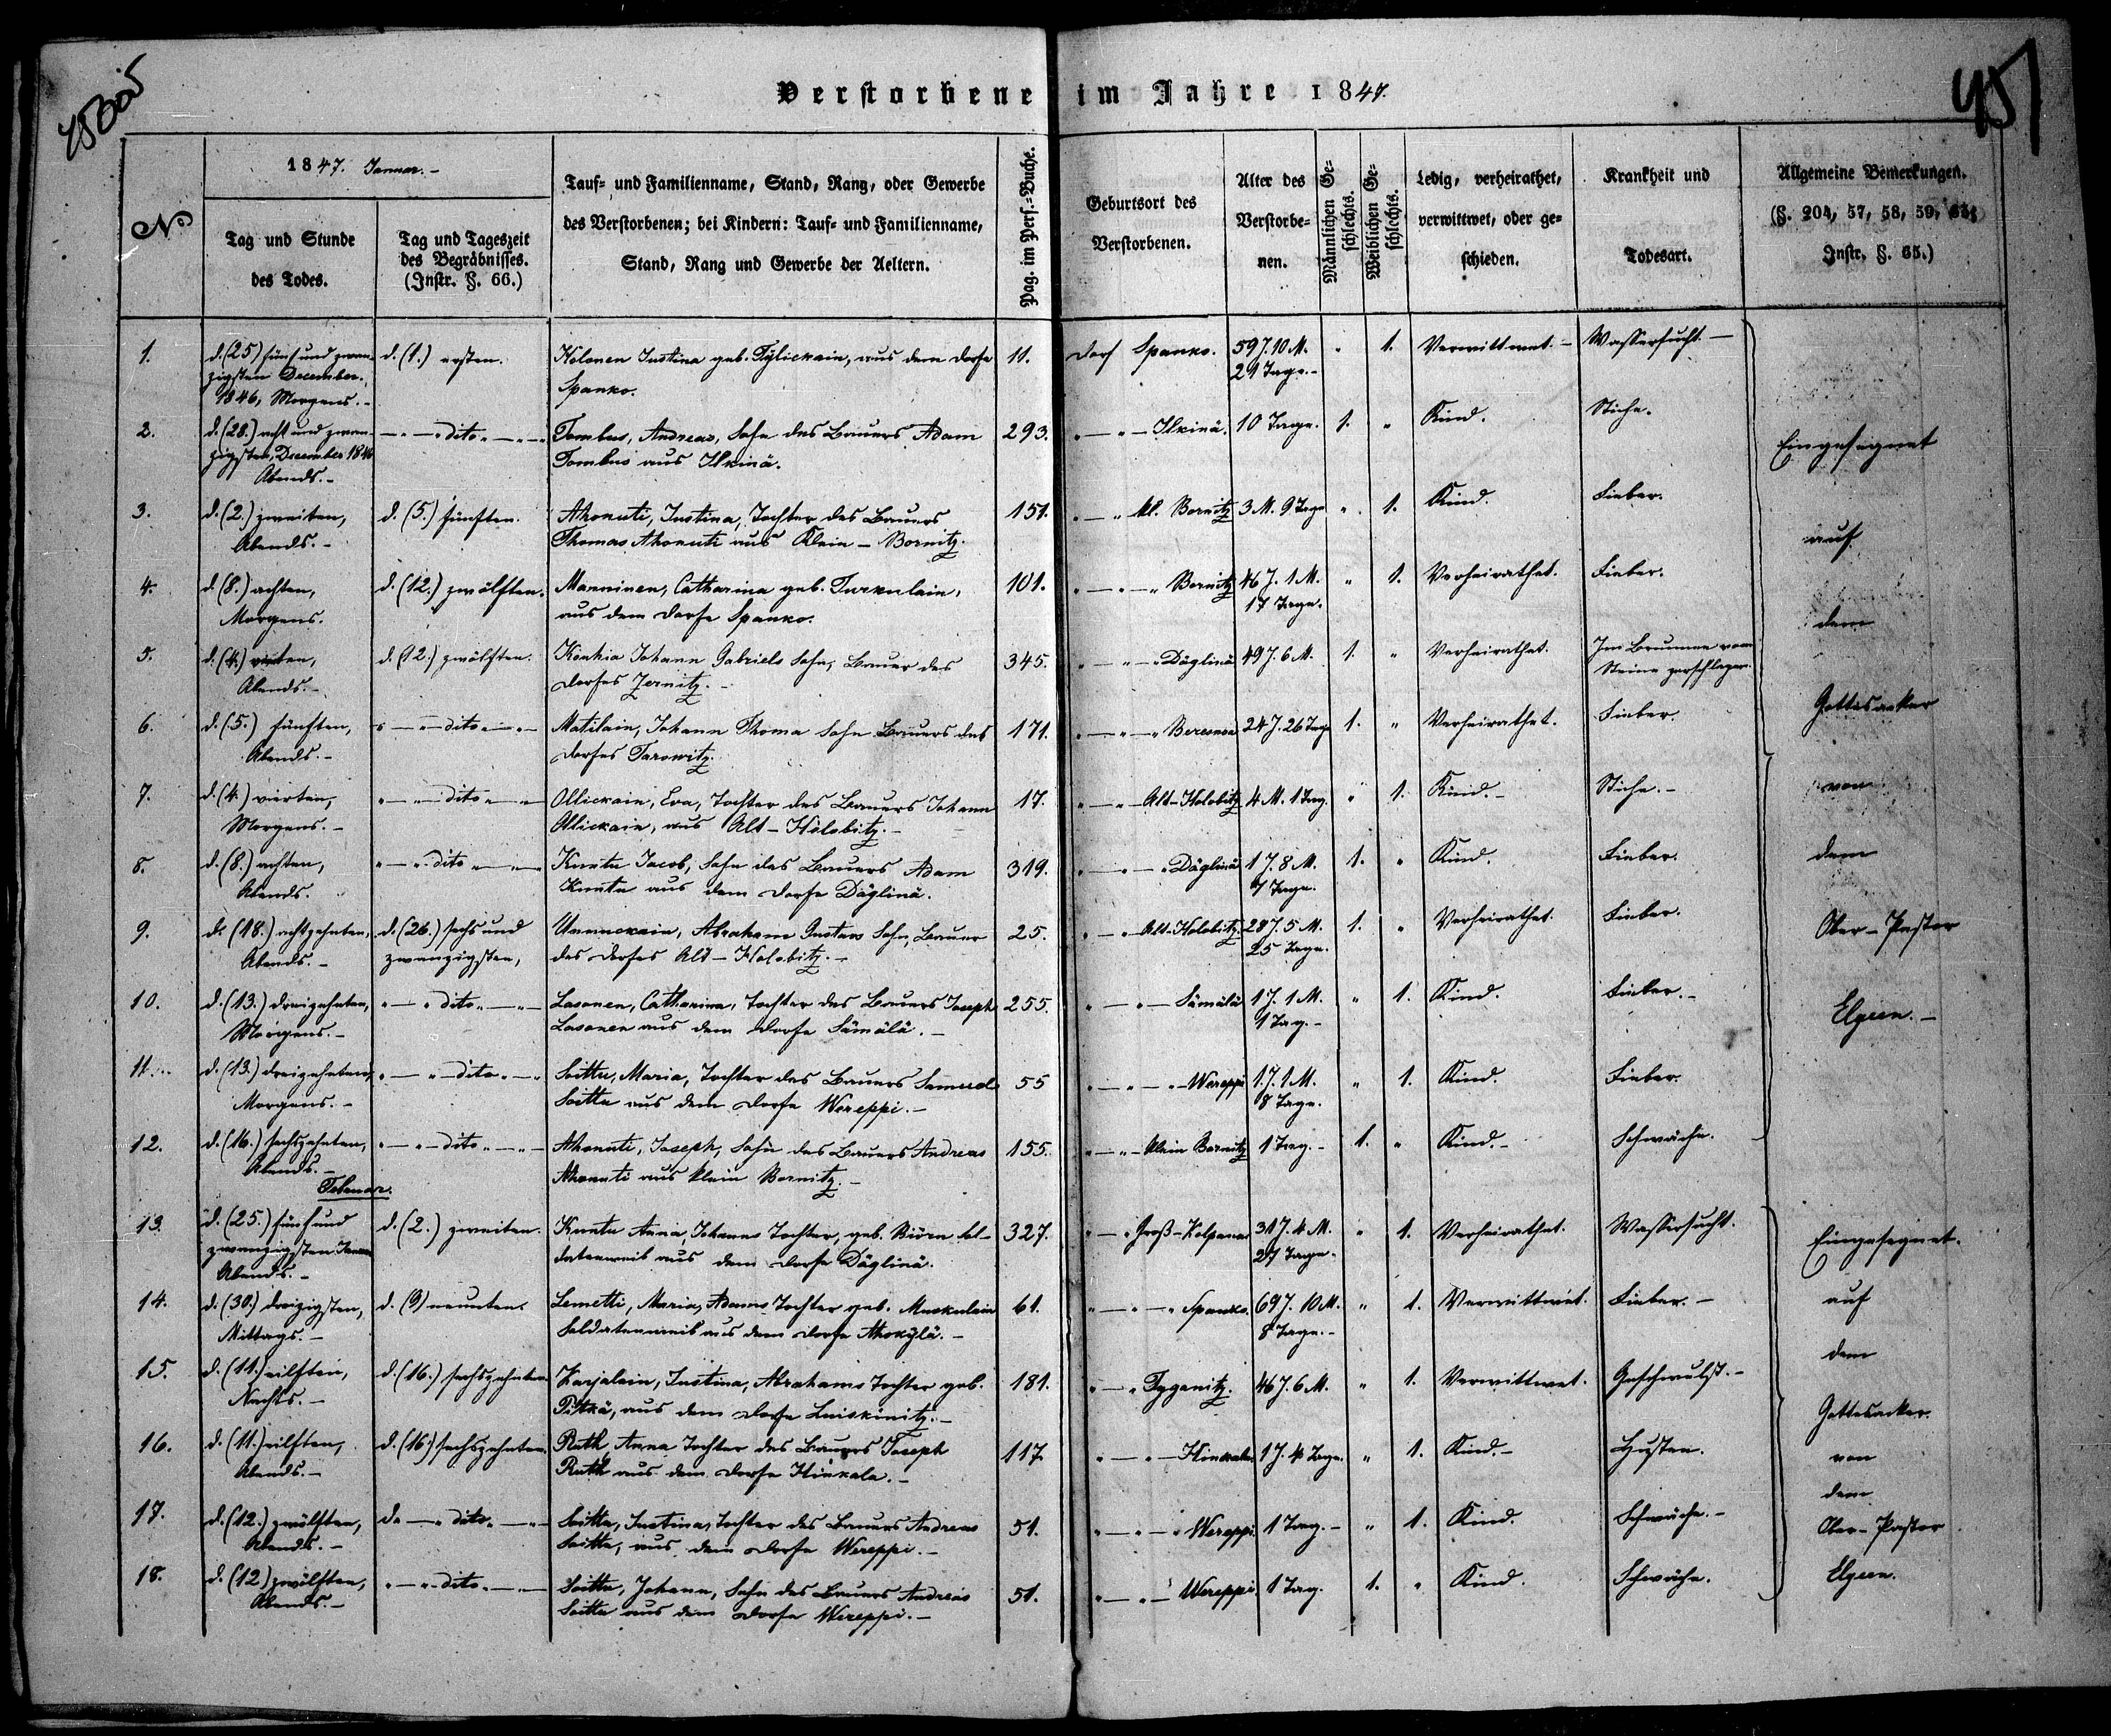 Verstorbene im Jahre 1847.
45
No
1847. Januar. -
Tag und Stunde
des Todes.
Tag und Tageszeit
des Begräbnisses.
(Instr. §. 66.)
Tauf- und Familienname, Stand, Rang, oder Gewerbe
des Verstorbenen; bei Kindern: Tauf- und Familienname,
Stand, Rang und Gewerbe der Aeltern.
Pag. im Pers.-Buche.
Geburtsort des
Verstorbenen.
Alter des
Verstorbe-
nen.
Männlichen Ge-
schlechts.
Weiblichen Ge-
schlechts.
Ledig, verheirathet,
verwittwet, oder ge-
schieden.
Krankheit und
Todesart.
Allgemeine Bemerkungen.
(§. 204, 57, 58, 59, 63,
Instr. §. 65.)
1. d. (25) fünf und zwan- d. (1.) ersten. Holonen Justina geb. Tylickain, aus dem Dorfe 11. Dorf Spanko. 59 J. 10 M. " 1. Verwittwet. - Wassersucht. -
zigsten December. Spanko. 21 Tage. -
1846, Morgens. -
2. d. (28.) acht und zwan- " - " dito " - " Tombus, Andreas, Sohn des Bauers Adam 293. " - " - Ilkinä. 10 Tage. 1. " Kind. Stiche.
zigsten, December 1846 Tombus aus Ilkinä.
Abends. -
3. d. (2.) zweiten, d. (5.) fünften. Ahonuti, Justina, Tochter des Bauers 151. " - " kl. Bornitz 3 M. 9 Tage " 1. Kind. Fieber.
Abends. - Thomas Ahonuti aus Klein-Bornitz.
4. d. (8.) achten, d. (12.) zwölften. Manninen, Catharina geb. Turkulain, 101. " - " - " Bornitz 46 J. 1 M. " 1. Verheirathet. Fieber.
Morgens. aus dem Dorfe Spanko. 17 Tage.
5. d. (4.) vierten, d. (12.) zwölften. Johann Gabriels Sohn, Bauer des 345. " - " - " Däglinä 49 J. 6 M. 1. " Verheirathet. Im Brunnen vom
Abends. - Dorfes Zernitz. - Steine zerschlagen.
6. d. (5.) fünften, " - " dito " - " Matilain, Johann Thoma Sohn Bauers des 171. " - " - " 24 J. 26 Tage 1. " Verheirathet. Fieber.
Abends. - Dorfes Tarowitz.
7. d. (4.) vierten, " - " dito " - " Ollickain, Eva, Tochter des Bauers Johann 17. " - " - Alt-Holobitz 4 M. 1 Tag. " 1. Kind. - Stiche. -
Morgens. - Ollickain, aus Alt-Holobitz. -
8. d. (8.) achten, " - " dito " - " Kuntu Jacob, Sohn des Bauers Adam 319. " - " - " Däglinä 1 J. 8 M. 1. " Kind. Fieber.
Abends. Kuntu aus dem Dorfe Däglinä. 7 Tage.
9. d. (18.) achtzehnten, d. (26.) sechs und Abraham Gustavs Sohn, Bauer 25. " - " - Alt-Holobitz 28 J. 5 M. 1. " Verheirathet. Fieber.
Abends. - zwanzigsten, des Dorfes Alt-Holobitz. - 25 Tage.
10. d. (13.) dreizehnten, " - " dito " - " Lasonen, Catharina, Tochter des Bauers Joseph 255. " - " - Sämälä 1 J. 1 M. " 1. Kind. Fieber. -
Morgens. - Lasonen aus dem Dorfe Sämälä. - 1 Tag. -
11. d. (13.) dreizehnten, " - " dito " - " Soittu, Maria, Tochter des Bauers Samuel 55 " - " - " Wereppi 1 J. 1 M. " 1. Kind. Fieber.
Morgens. - Soittu aus dem Dorfe Wereppi. - 8 Tage.
12. d. (16.) sechszehnten, " - " dito " - " Ahonuti, Joseph, Sohn des Bauers Andreas 155. " - " - Klein Bornitz 1 Tag. - 1. " Kind. - Schwäche.
Abends. - Ahonuti aus klein Bornitz. -
Februar.
13. d. (25.) fünf und d. (2.) zweiten. Kuntu Anna, Johanns Tochter, geb. Björn Sol- 327. " - " Groß-Kolpana 31 J. 4 M. " 1. Verheirathet. Wassersucht.
zwanzigsten Januar datenweib aus dem Dorfe Däglinä. 27 Tage.
Abends. -
14. d. (30.) dreizigsten, d. (9) neunten. Lemetti, Maria, Adams Tochter geb. Muskulain 61. " - " - " Spanko. 69 J. 10 M. " 1. Verwittwet. Fieber. -
Mittags. - Soldatenweib aus dem Dorfe Ahokylä. - 8 Tage. -
15. d. (11.) eilften, d. (16.) sechszehnten Karjalain, Justina, Abrahams Tochter geb. 181. " - " Tyganitz. 46 J. 6 M. " 1. Verwittwet. Geschwulst. -
Nachts. - Pitkä, aus dem Dorfe Luiskinitz. -
16. d. (11.) eilften, d. (16) sechszehnten. Ruth Anna Tochter des Bauers Joseph 117. " - " - Hinkala 1 J. 4 Tage. " 1. Kind. - Husten.
Abends. - Ruth aus dem Dorfe Hinkala. -
17. d. (12.) zwölften, d. - " dito. " - Soittu, Justina, Tochter des Bauers Andreas 51. " - " - " Wereppi. 1 Tag. - " 1. Kind. Schwäche. -
Abends. - Soittu, aus dem Dorfe Wereppi. -
18. d. (12) zwölften, " - " dito. " - Soittu, Johann, Sohn des Bauers Andreas 51. " - " - Wereppi 1 Tag. 1. " Kind. Schwäche.
Abends. - Soittu aus dem Dorfe Wereppi. -
Eingesegnet
auf
dem
Gottesacker
von
dem
Ober-Pastor
Elgeen. -
Eingesegnet.
auf
dem
Gottesacker.
von
dem
Ober-Pastor
Elgeen.